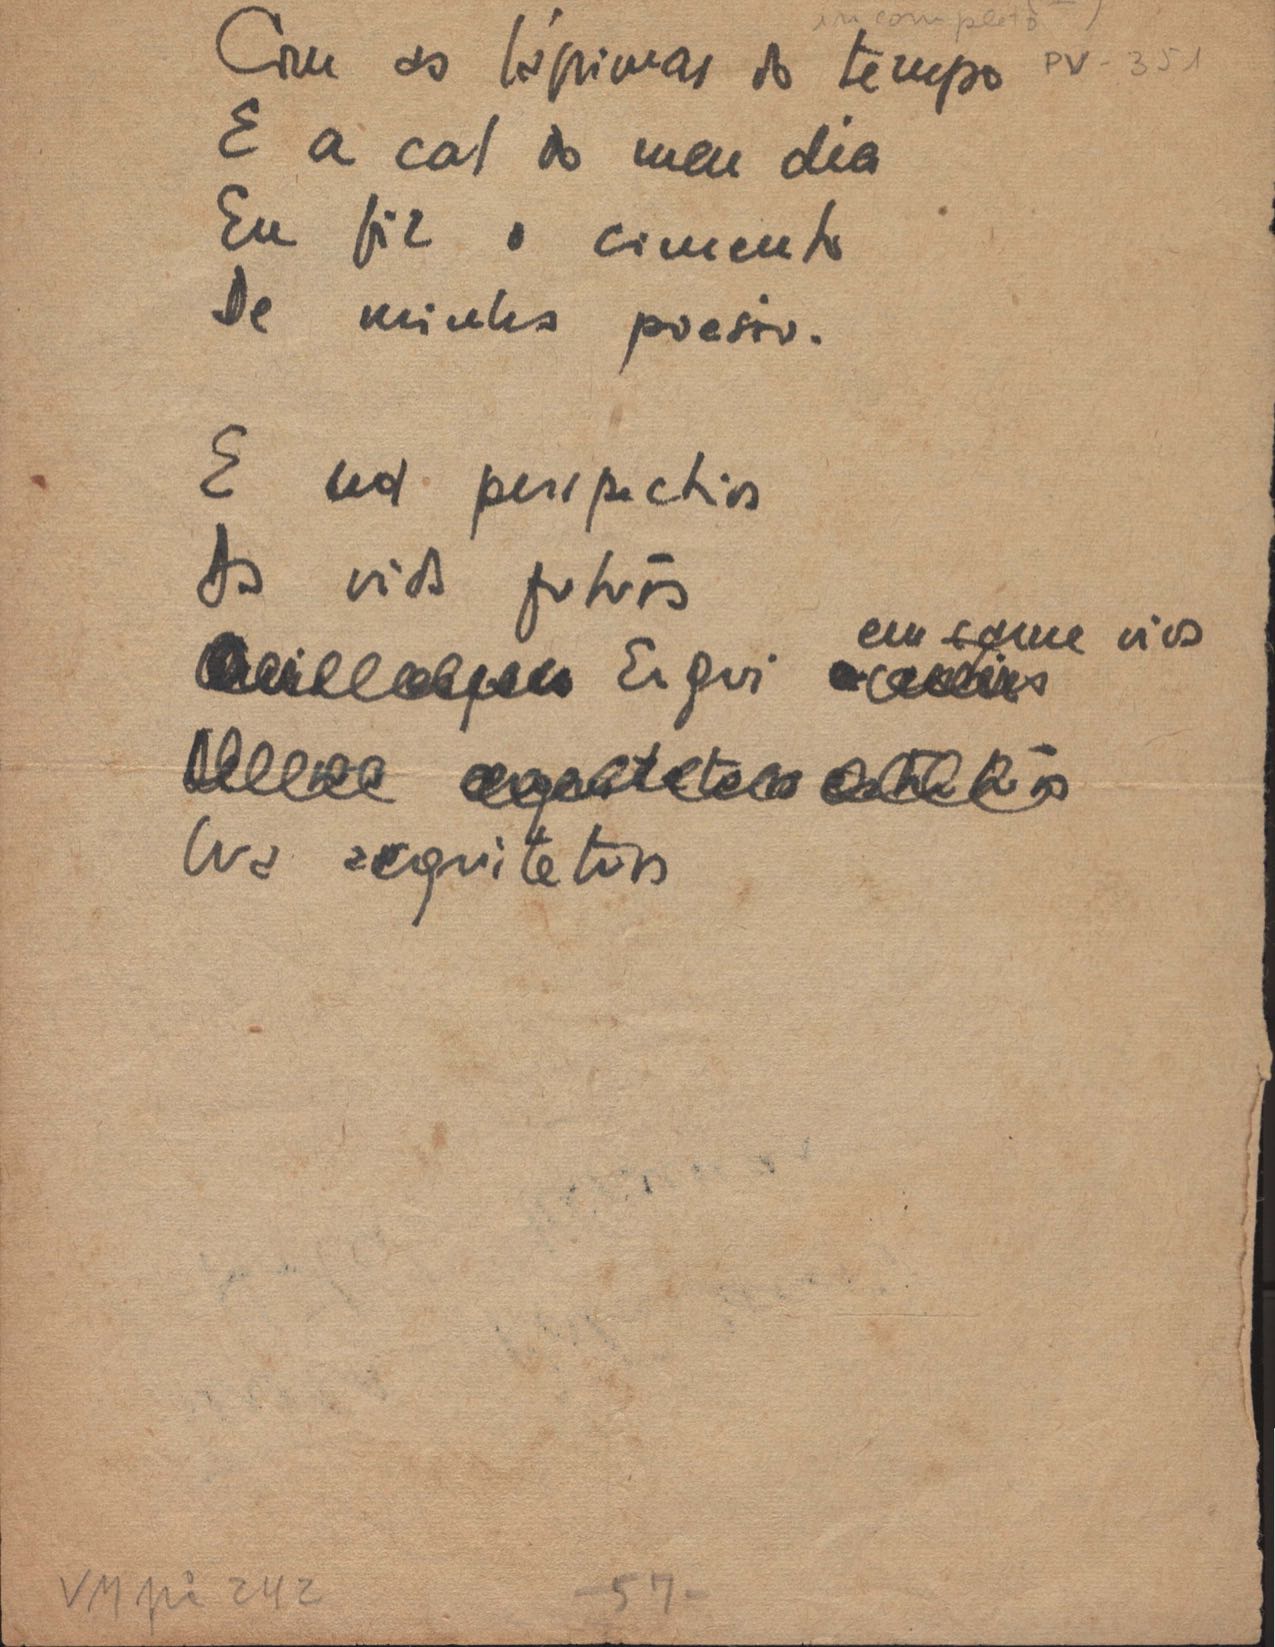 incompleto)
PV-351
Com as lágrimas do tempo
E a cal do meu dia
Eu fiz o cimento
De minha poesia.
E na perspectiva
Da vida futura
em carne viva
Ergui
Sua arquitetura
VMpi 242
-57-